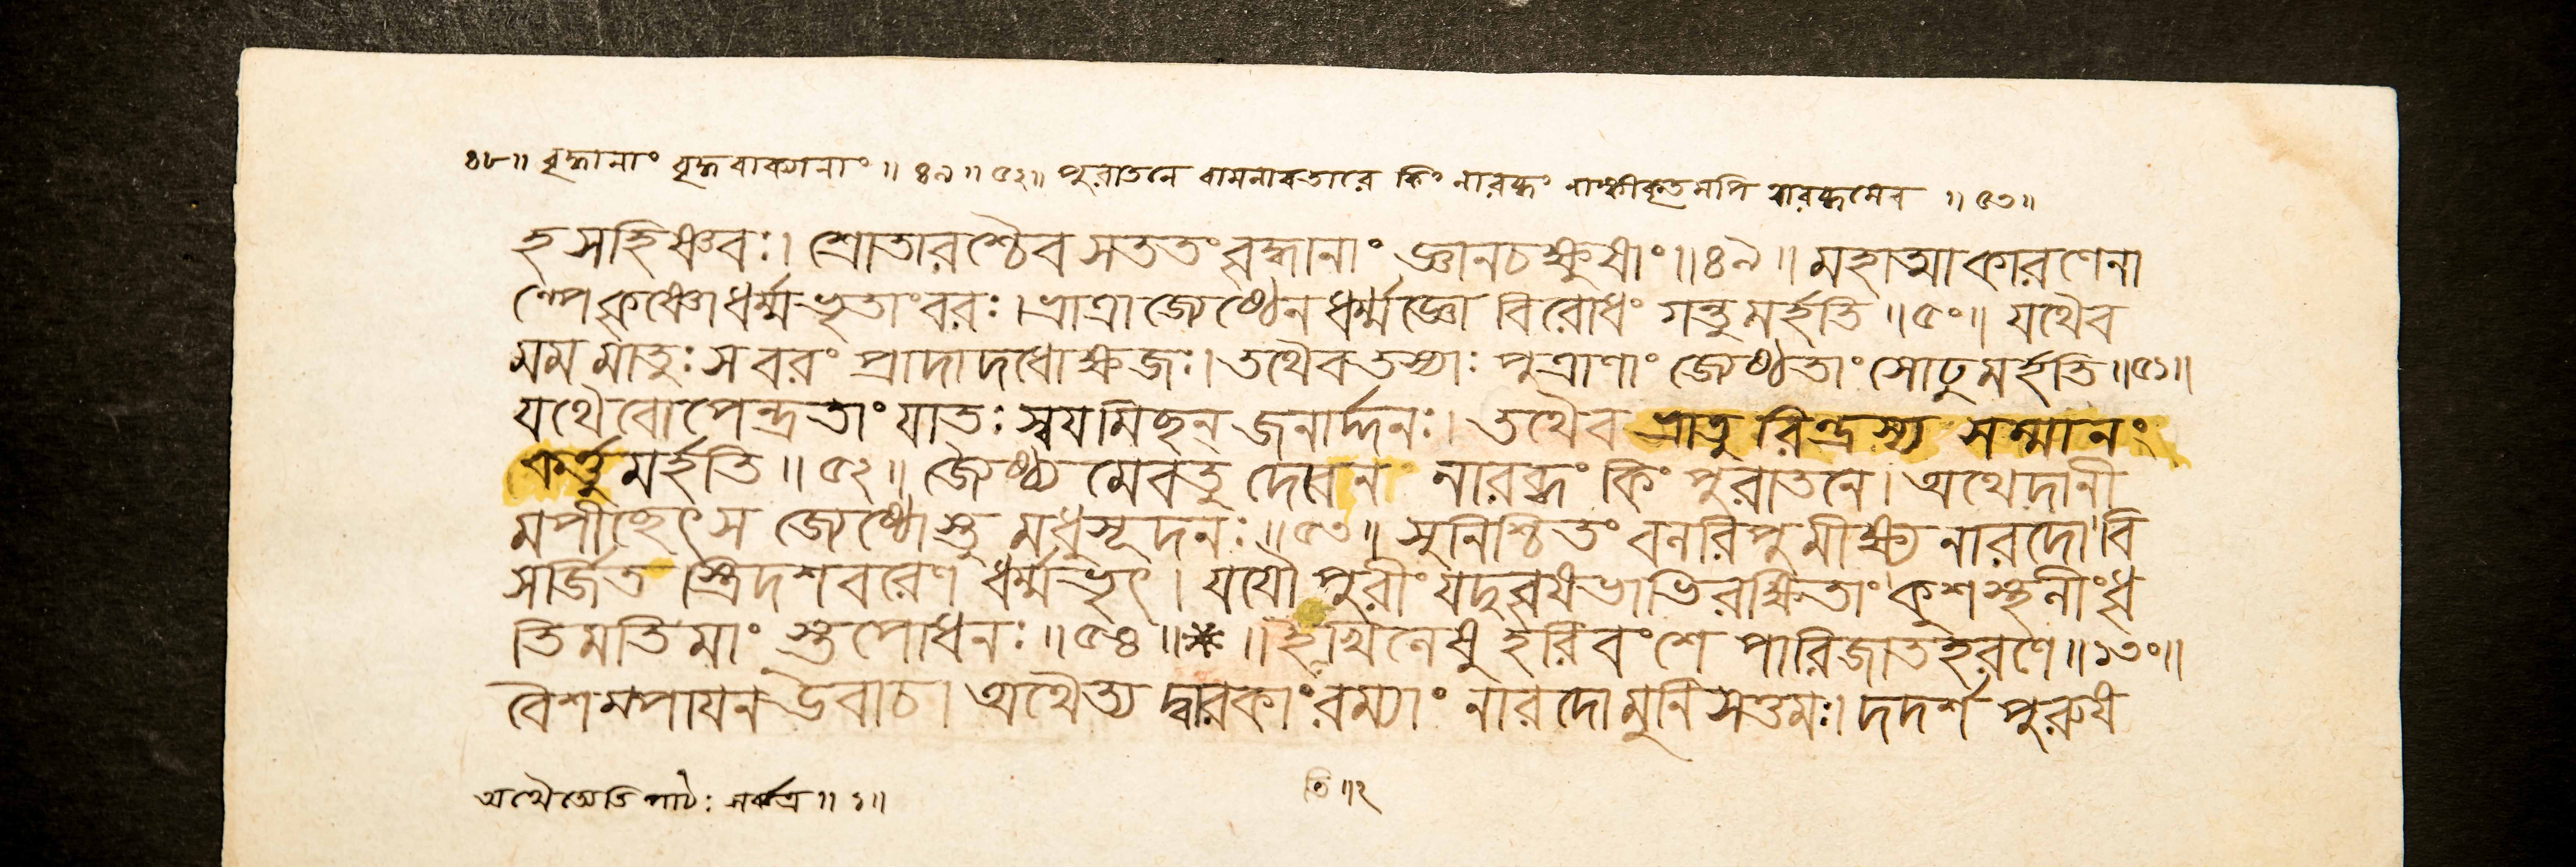 ৪৮॥ বৃদ্ধানাং বৃদ্ধবাক্যানাং ॥ ৪৯ ॥ ৫২॥ পুরাতনে বামনাবতারে কিং নারব্ধং নাঙ্গীকৃতমপি আরব্ধমেব ॥ ৫৩॥
হ সদ্ভিশ্চবঃ। শ্রোতারশ্চৈব সততং বৃদ্ধানাং জ্ঞানচক্ষুষাং॥৪৯॥ মহাত্মাকারণেনা
ধর্ম্মভৃতাংবরঃ। ভ্রাত্রা জ্যেষ্ঠেন ধর্ম্মজ্ঞো বিরোধং গন্তুমর্হতি ॥৫০॥ যথৈব
মম মাতুঃ স বরং প্রাদাদধোক্ষজঃ। তথৈব তস্যাঃ পুত্রাণাং জ্যেষ্ঠতাং সোঢুমর্হতি॥৫১॥
যথৈবোপেন্দ্রতাং যাতঃ স্বযমিছন্ জনার্দ্দনঃ। তথৈব ভ্রাতুরিন্দ্রস্য সম্মানং
কর্ত্তুমর্হতি ॥ ৫২॥ জ্যৈষ্ঠ্য মেবতু দেবেন নারব্ধং কিং পুরাতনে। অথেদানী
মপীছেৎ স জ্যেষ্ঠোস্তু মধুসূদনঃ॥৫৩॥ সুনিশ্চিতং বলরিপুমীক্ষ্য নারদো বি
সর্জিত স্ত্রিদশবরেণ ধর্ম্মভৃৎ। যযৌ পুরীং যদুবৃষভাভিরক্ষিতাং কুশস্থলীং ধৃ
তিমতিমাং স্তপোধনঃ॥৫৪॥*॥ ই খিলেষু হরিবংশে পারিজাতহরণে॥১৩০॥
বৈশম্পাযন উবাচ। অথৈত্য দ্বারকাং রম্যাং নারদো মুনিসত্তমঃ। দদর্শ পুরুষ
পাঠঃ সর্বত্র॥ ১॥
তি॥২